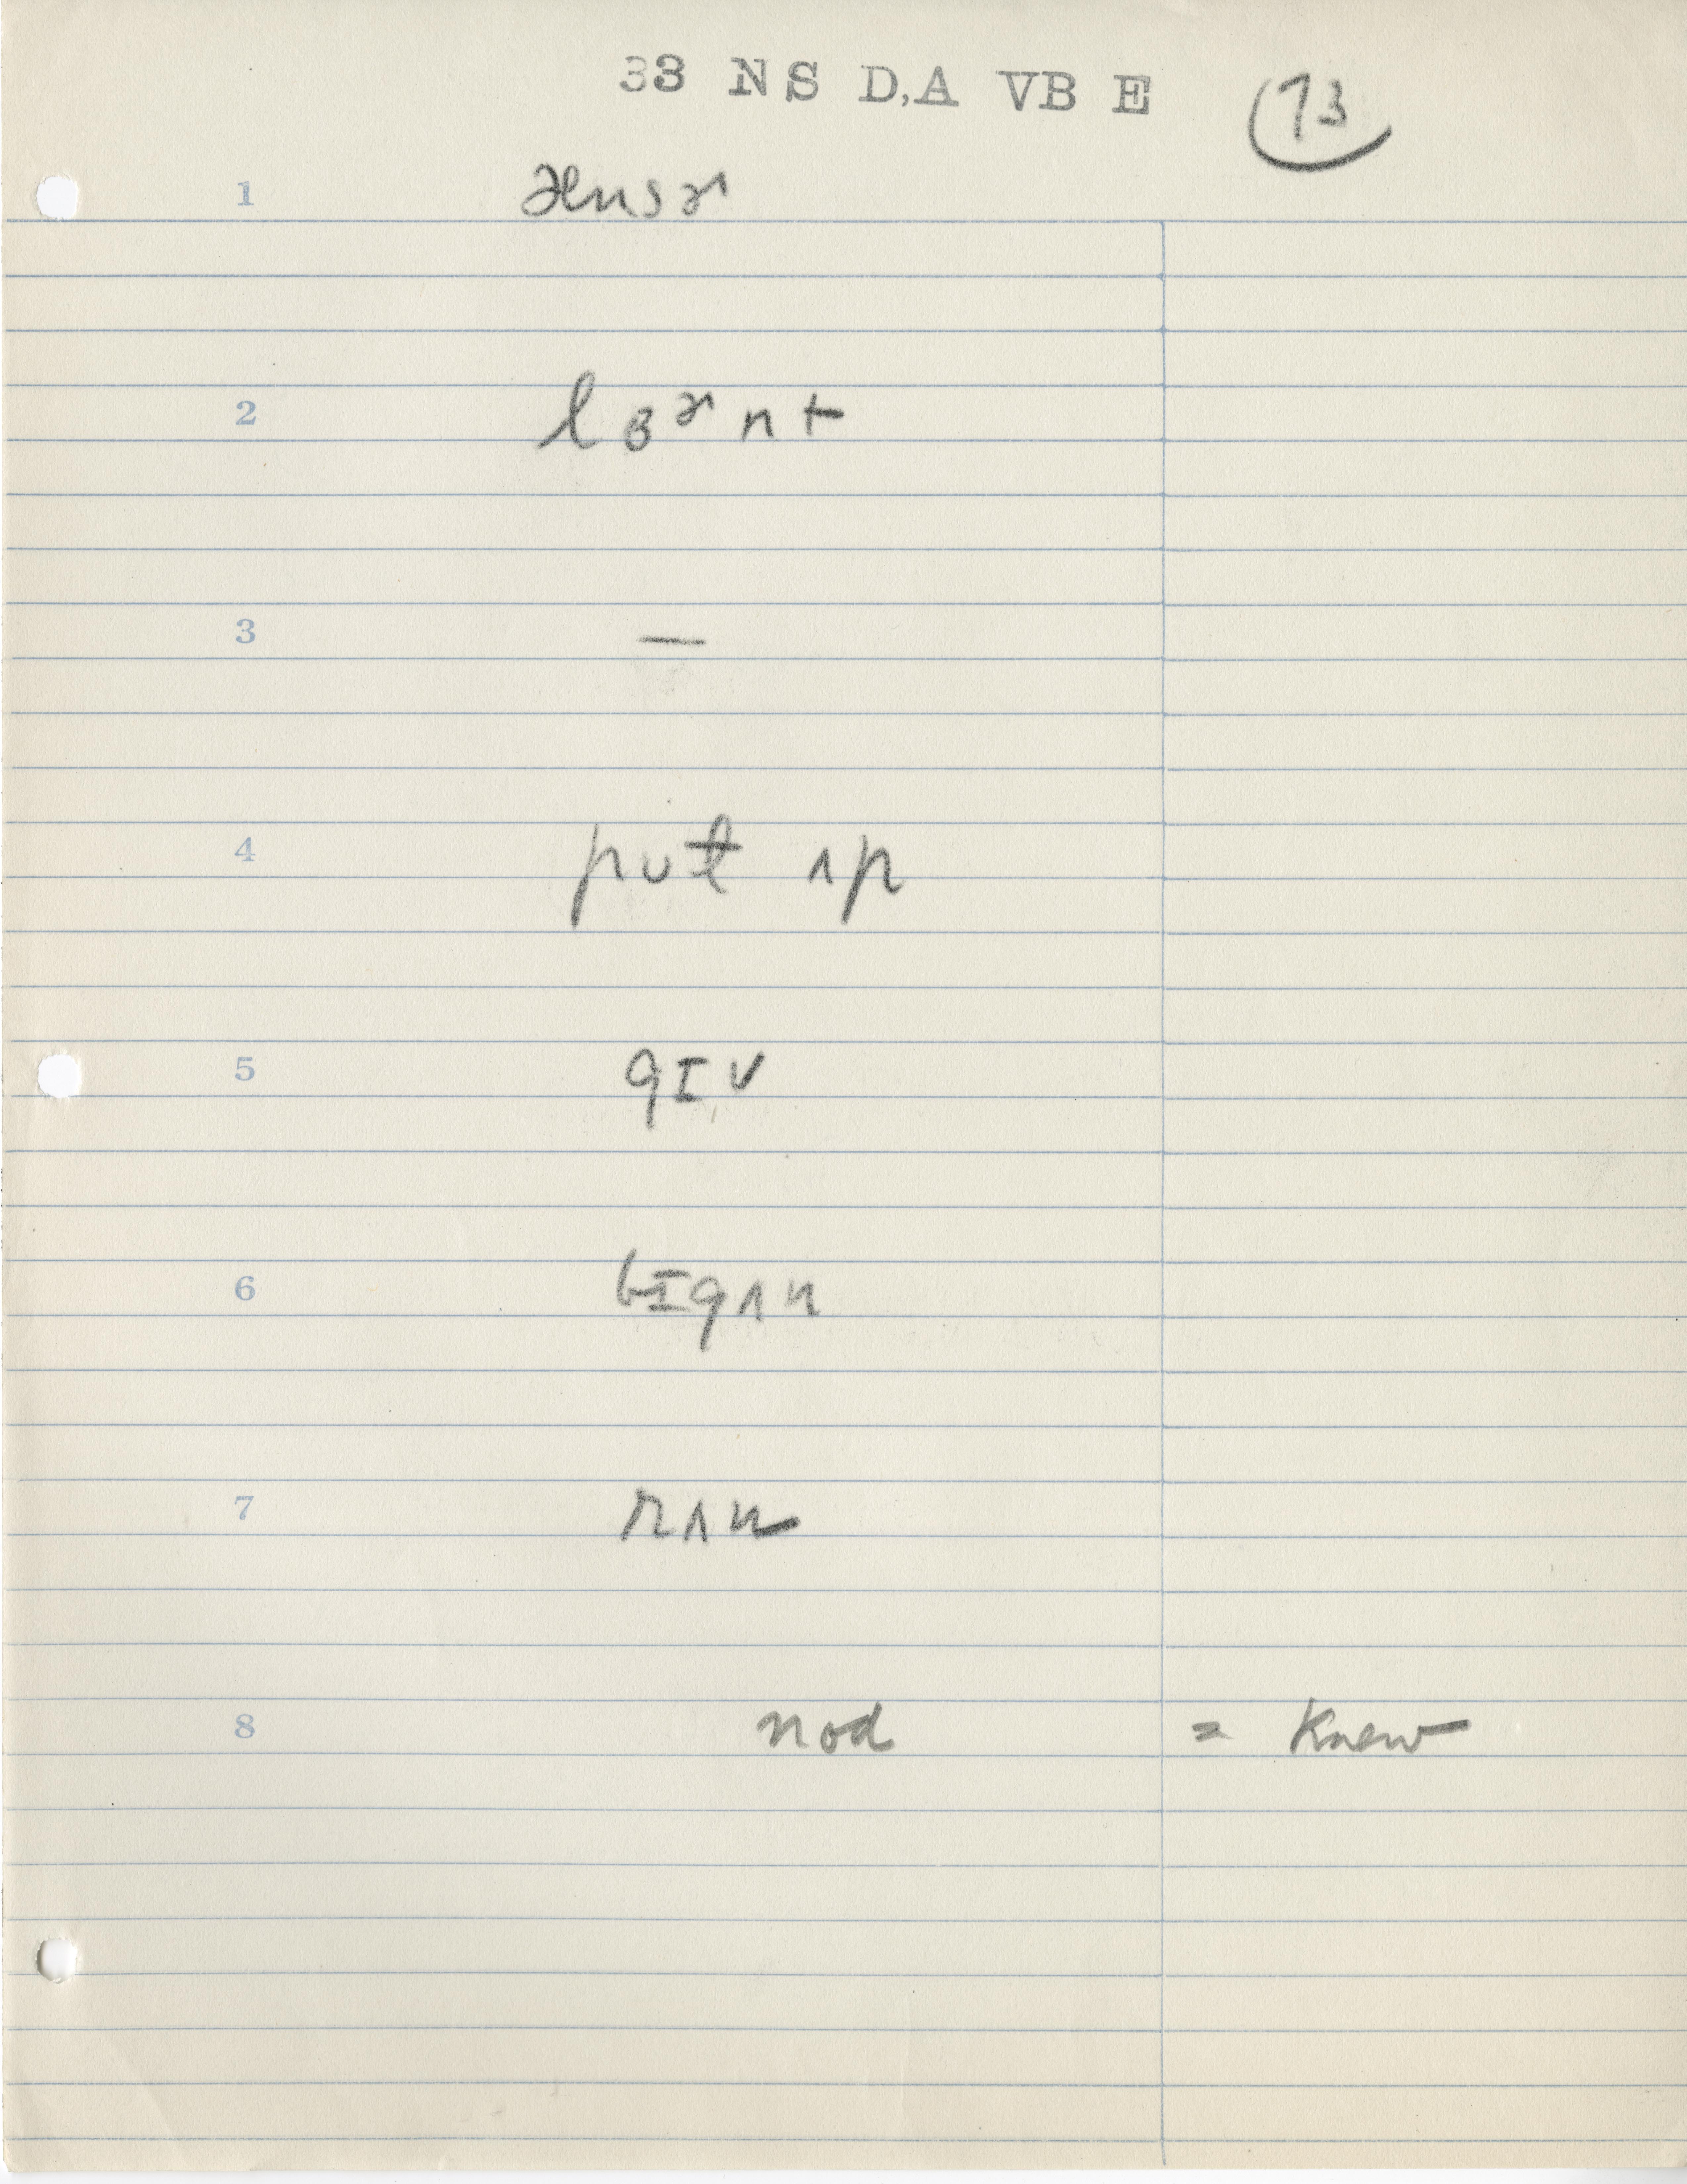 33 NS D,A VB E 73
1 ænsɚ
2 lɜɚnt
3 —
4 pʊt ʌp
5 gɪv
6 bɪgʌn
7 rʌn
8 nod = Knew